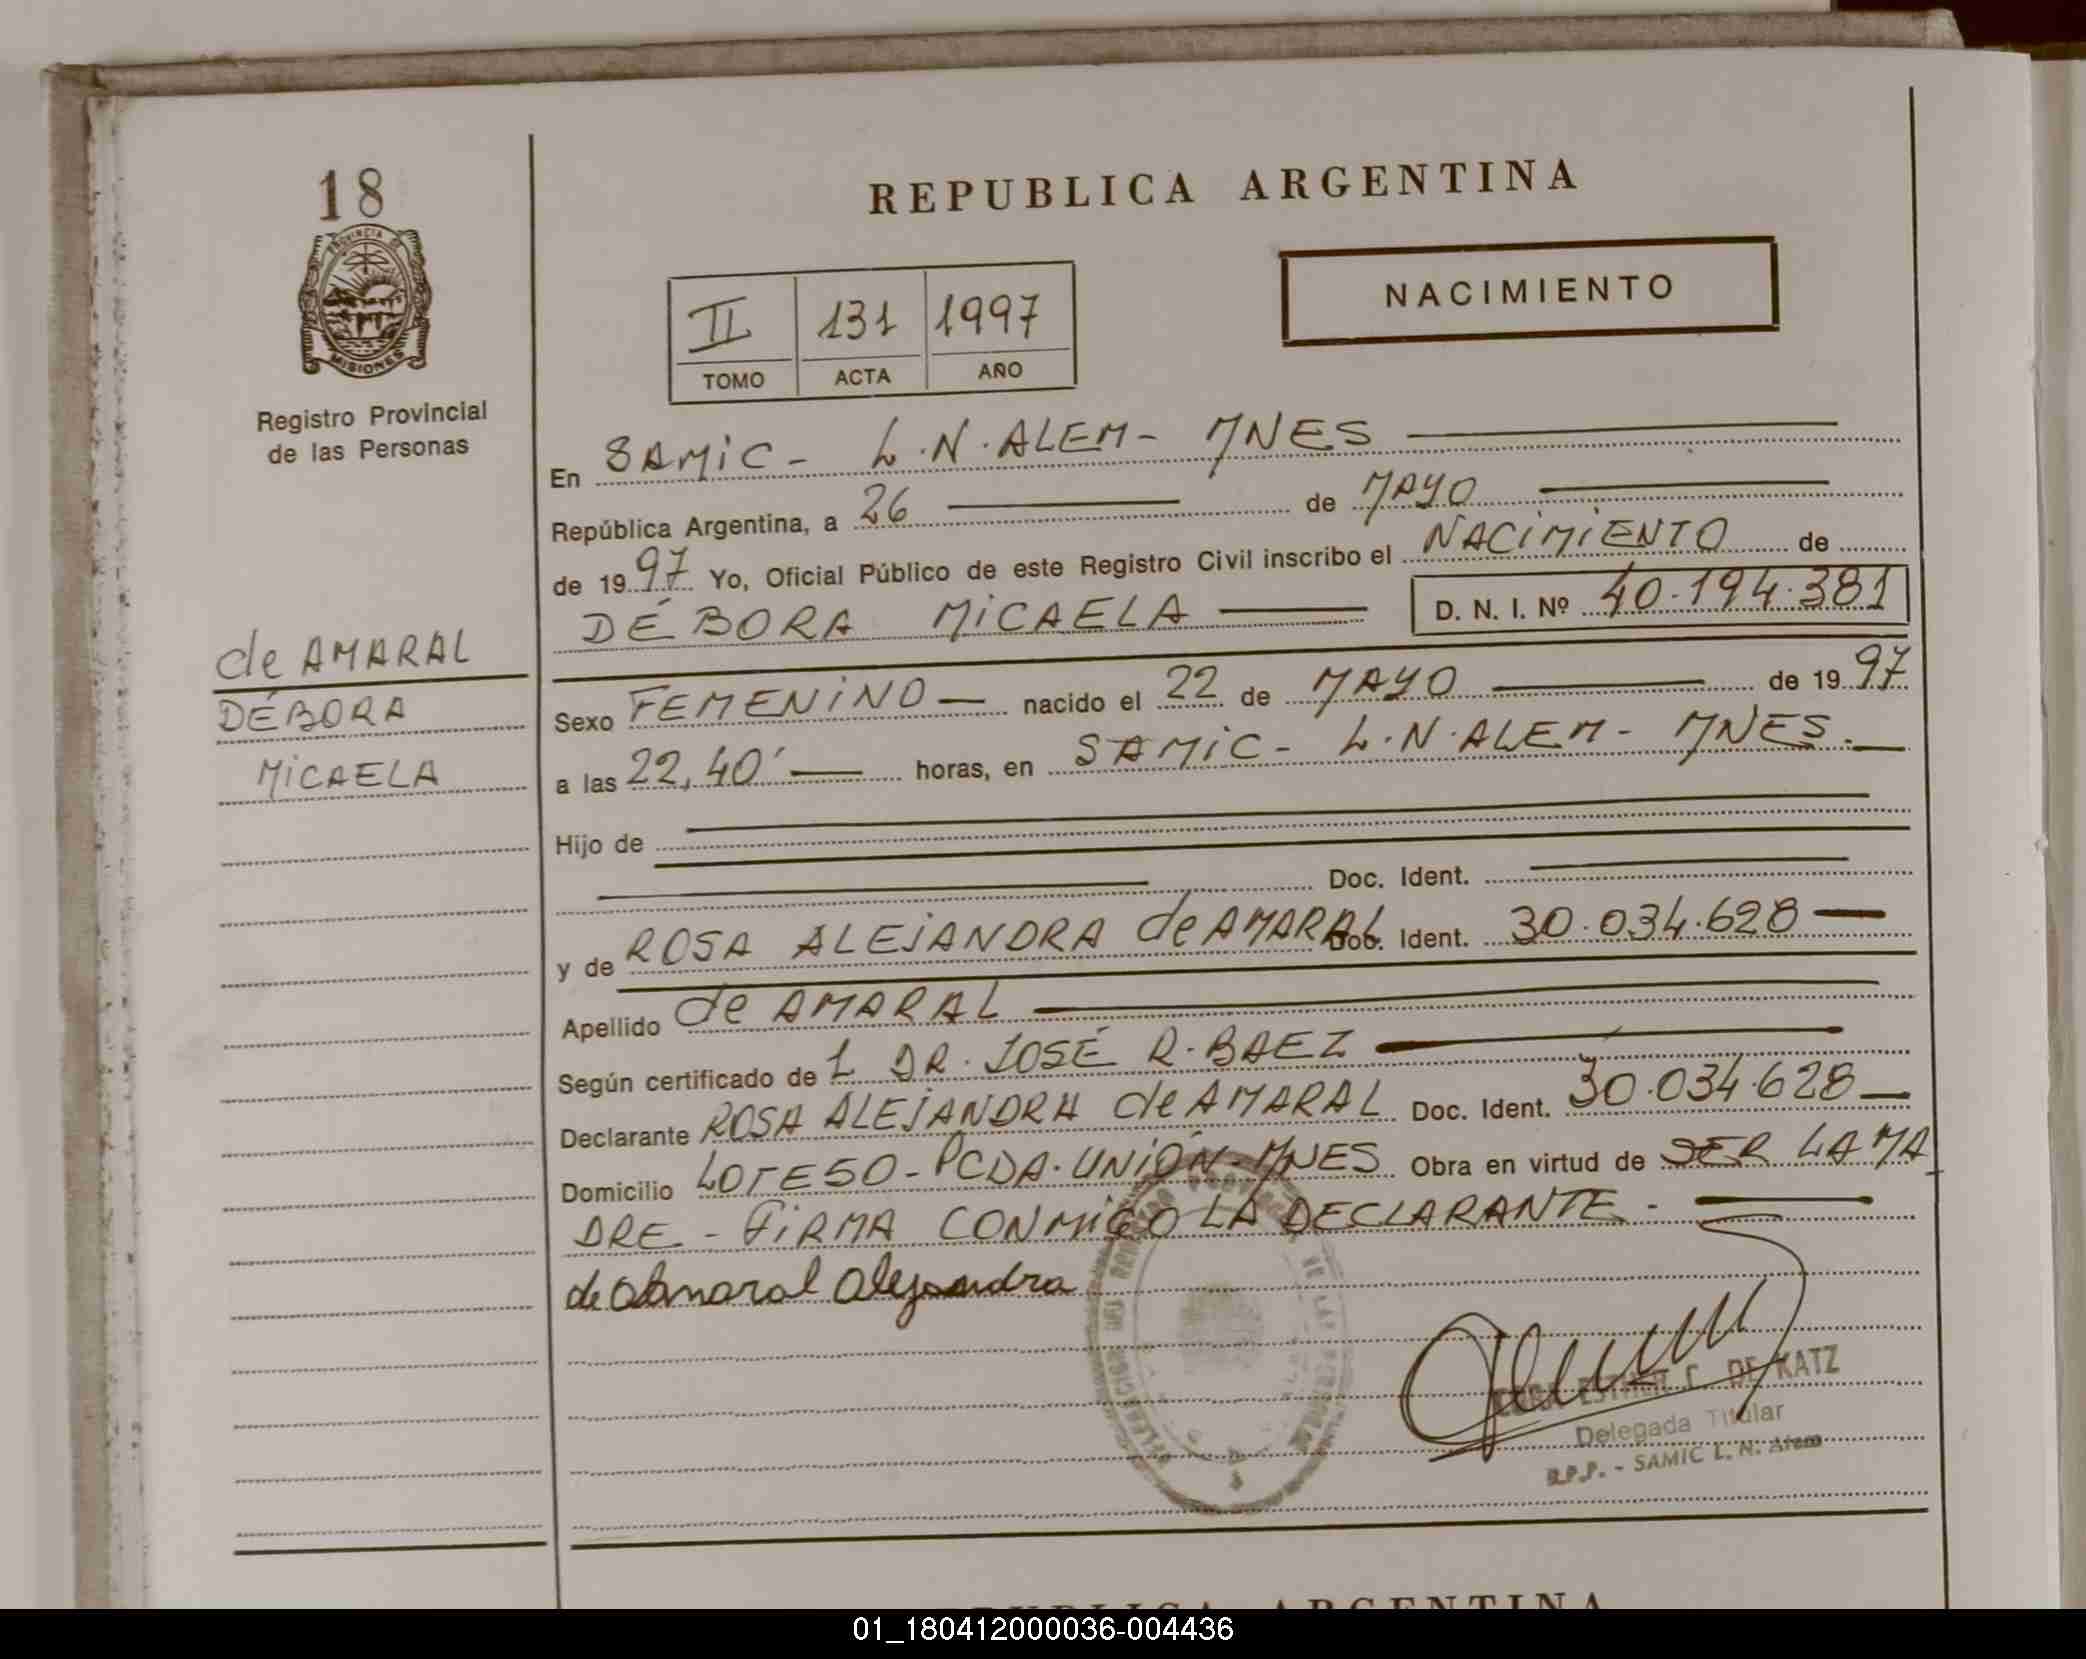 18
PROVINCIA DE
MISIONES
Registro Provincial
de las Personas
REPUBLICA ARGENTINA
II 131 1997
TOMO ACTA AÑO
NACIMIENTO
En SAMIC - L.N. ALEM - MNES
República Argentina, a 26 de MAYO
de 1997 Yo, Oficial Público de este Registro Civil inscribo el NACIMIENTO de
DÉBORA MICAELA D. N. I. Nº 40.194.381
de AMARAL
DÉBORA
MICAELA
Sexo FEMENINO nacido el 22 de MAYO de 1997
a las 22,40' horas, en SAMIC - L.N. ALEM - MNES.
Hijo de
Doc. Ident.
y de ROSA ALEJANDRA de AMARAL Doc. Ident. 30.034.628
Apellido de AMARAL
Según certificado de L DR. JOSÉ R. BAEZ
Declarante ROSA ALEJANDRA de AMARAL Doc. Ident. 30.034.628
Domicilio LOTE 50 - PCDA. UNIÓN - MNES Obra en virtud de SER LA MA
DRE - FIRMA CONMIGO LA DECLARANTE.
de Amaral Alejandra
ESTHER C. DE KATZ
Delegada Titular
R.P.P. - SAMIC L. N. Alem
REPUBLICA ARGENTINA
01_180412000036-004436